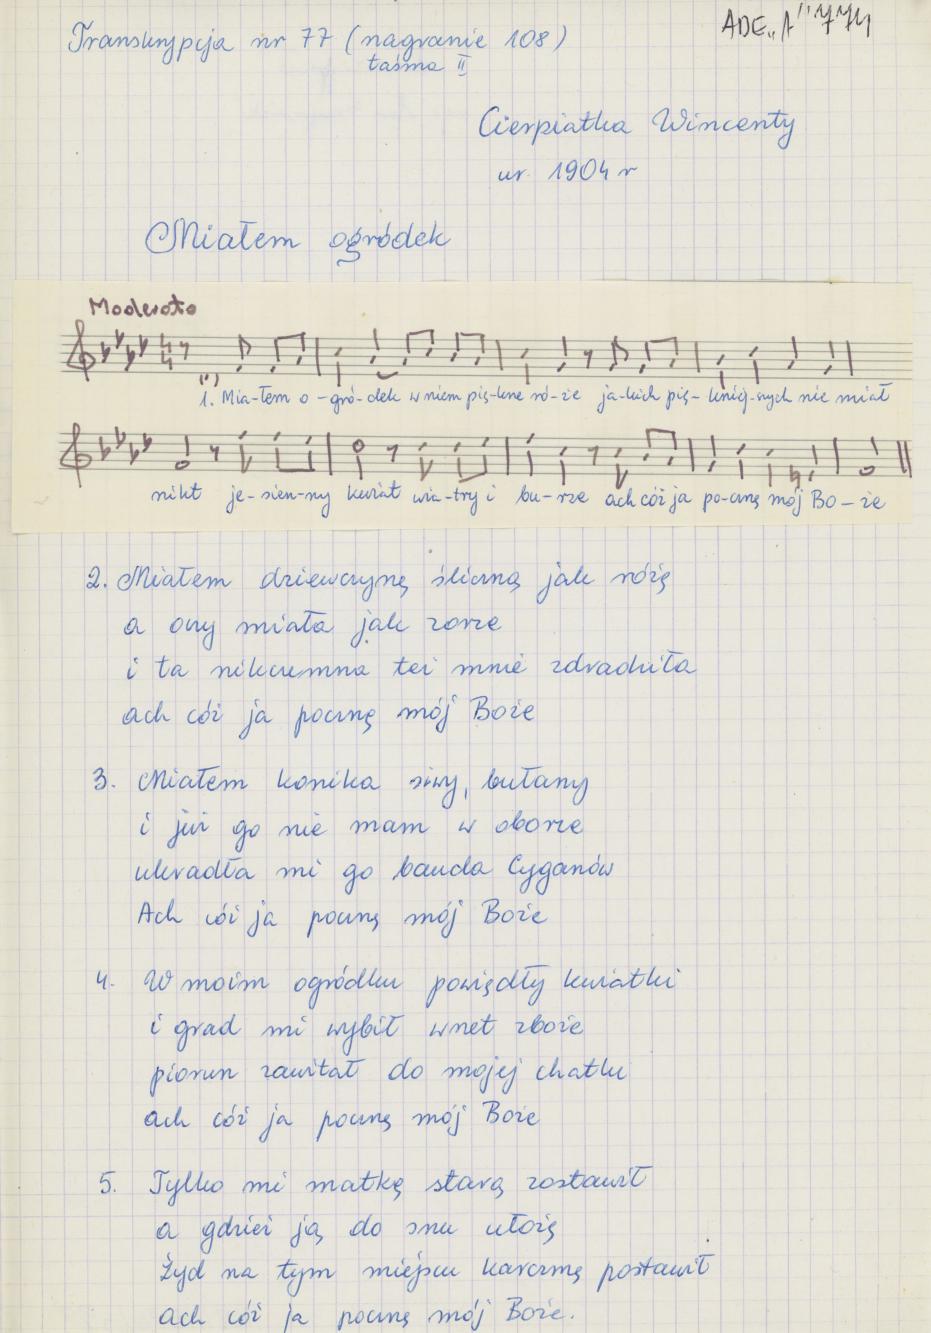 ADE "A" 774
Transkrypcja nr 77 (nagranie 108)
taśma II
Cierpiatka Wincenty
ur. 1904 r
Miałem ogródek
Moderato
1. Mia-łem o-gró-dek w niem pię-kne ró-że ja-kich pię-kniej-szych nie miał
nikt je-sien-ny kwiat wia-try i bu-rze ach cóż ja po-cznę mój Bo-że
2. Miałem dziewczynę śliczną jak różę
a oczy miała jak zorze
i ta nikczemna też mnie zdradziła
ach cóż ja pocznę mój Boże
3. Miałem konika siwy, bułany
i już go nie mam w oborze
ukradła mi go banda Cyganów
Ach cóż ja pocznę mój Boże
4. W moim ogródku powiędły kwiatki
i grad mi wybił wnet zboże
piorun zawitał do mojej chatku
ach cóż ja pocznę mój Boże
5. Tylko mi matkę starą zostawił
a gdzież ją do snu ułożę
Żyd na tym miejscu karczmę postawił
ach cóż ja pocznę mój Boże.